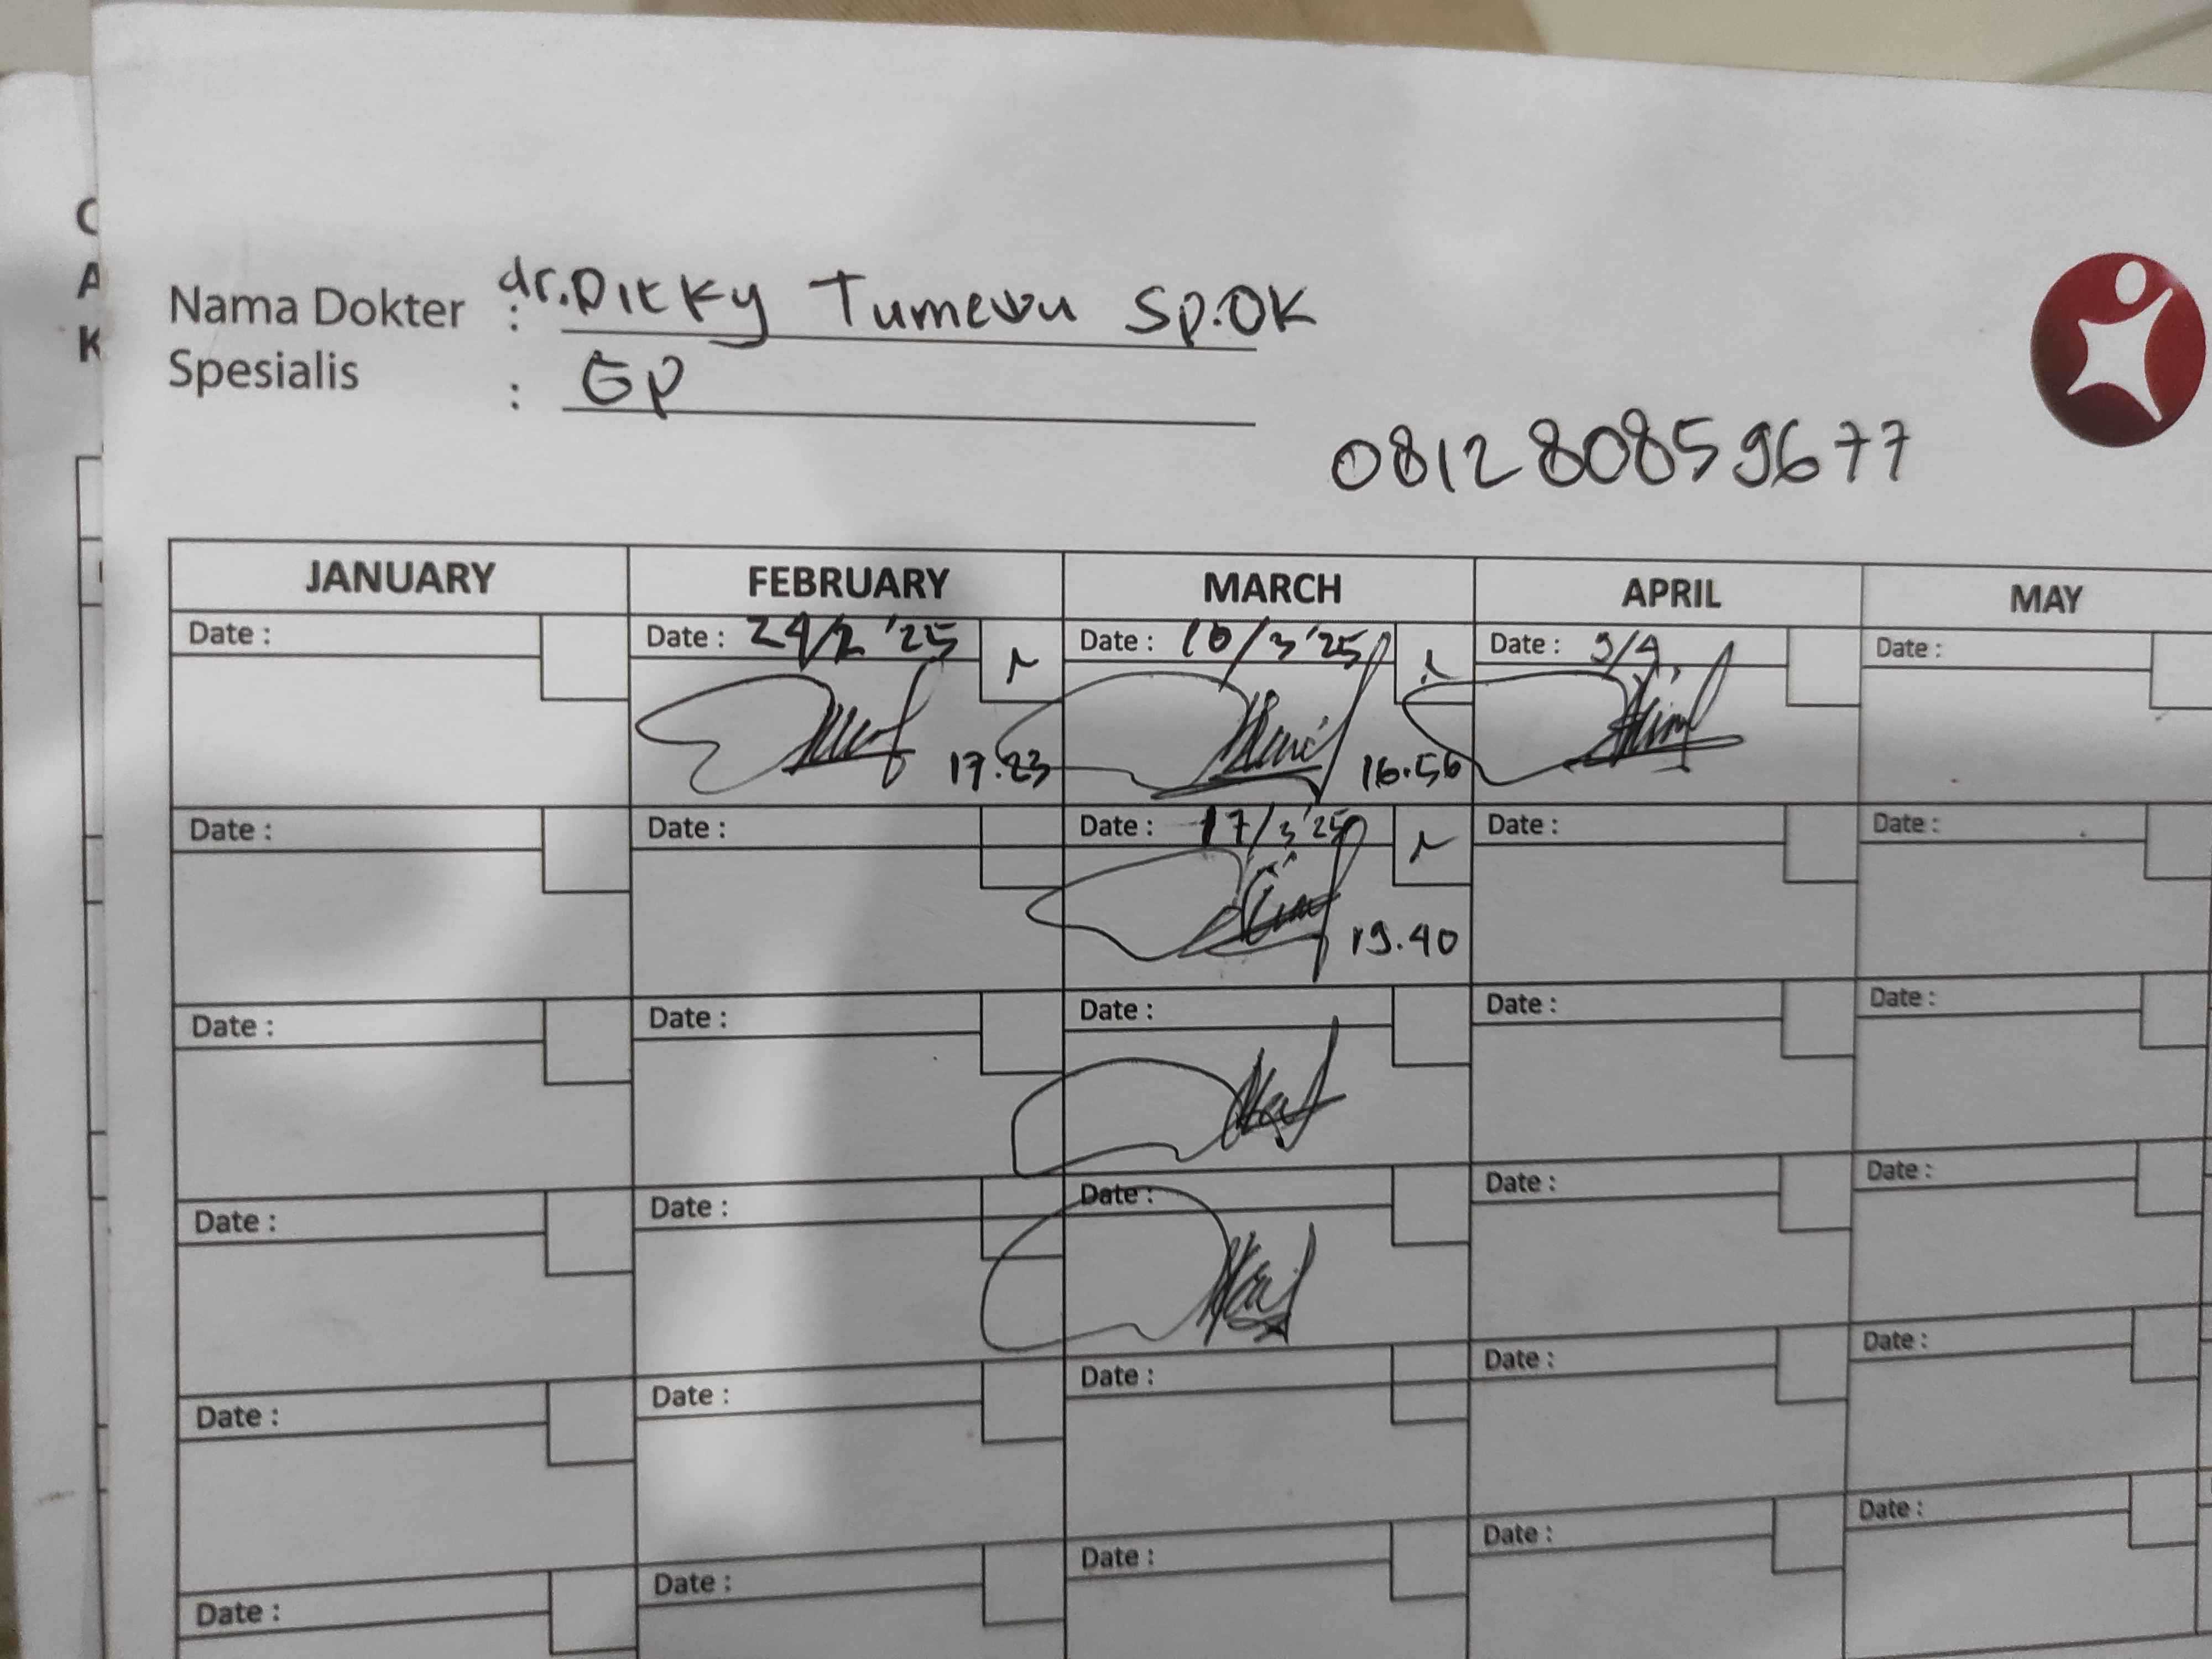 C
A
K
Nama Dokter : dr. Dicky Tumewu Sp.OK
Spesialis : GP
081280859677
JANUARY FEBRUARY MARCH APRIL MAY
Date : Date : 24/2 '25 Date : 10/3 '25 Date : 9/4 Date :
17.23 16.56
Date : Date : Date : 17/3 '25 Date : Date :
19.40
Date : Date : Date : Date : Date :
Date : Date : Date : Date : Date :
Date : Date : Date : Date : Date :
Date : Date : Date : Date : Date :